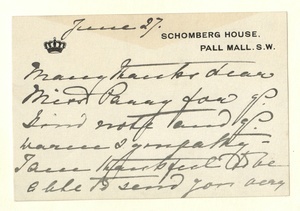 June 27.
SCHOMBERG HOUSE.
PALL MALL. S.W.
Many thanks dear
Miss Parry for yr.
kind note and yr.
warm sympathy -
I am thankful to be
able to send you very